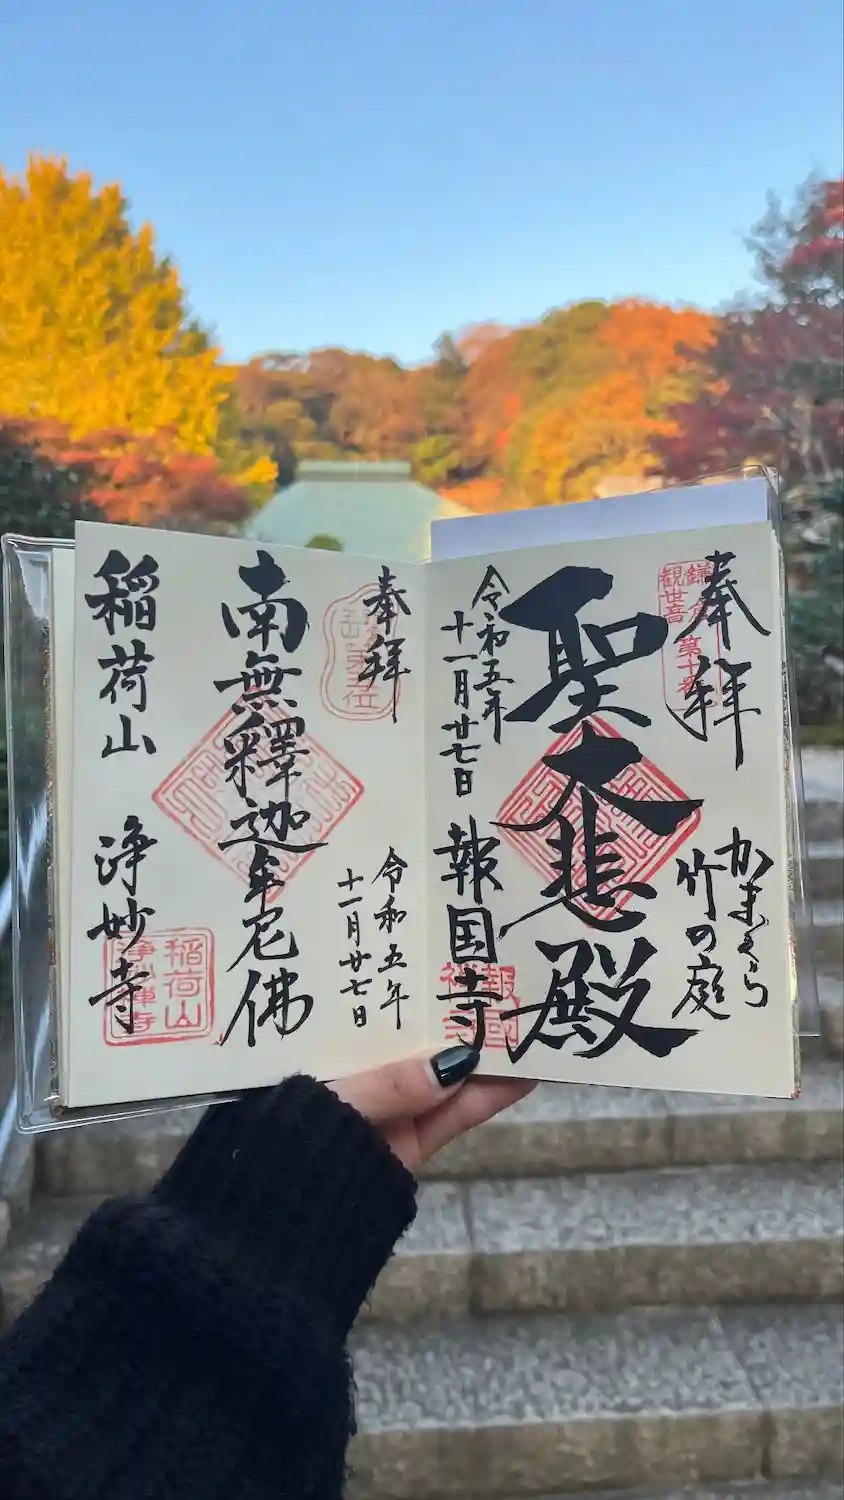 奉拝
かまくら
竹の庭
聖大悲殿
令和五年
十一月廿七日
報国寺
鎌倉
観世音
第十番
報国
禅寺
奉拝
令和五年
十一月廿七日
南無釋迦牟尼佛
稲荷山
浄妙寺
稲荷山
浄妙禅寺